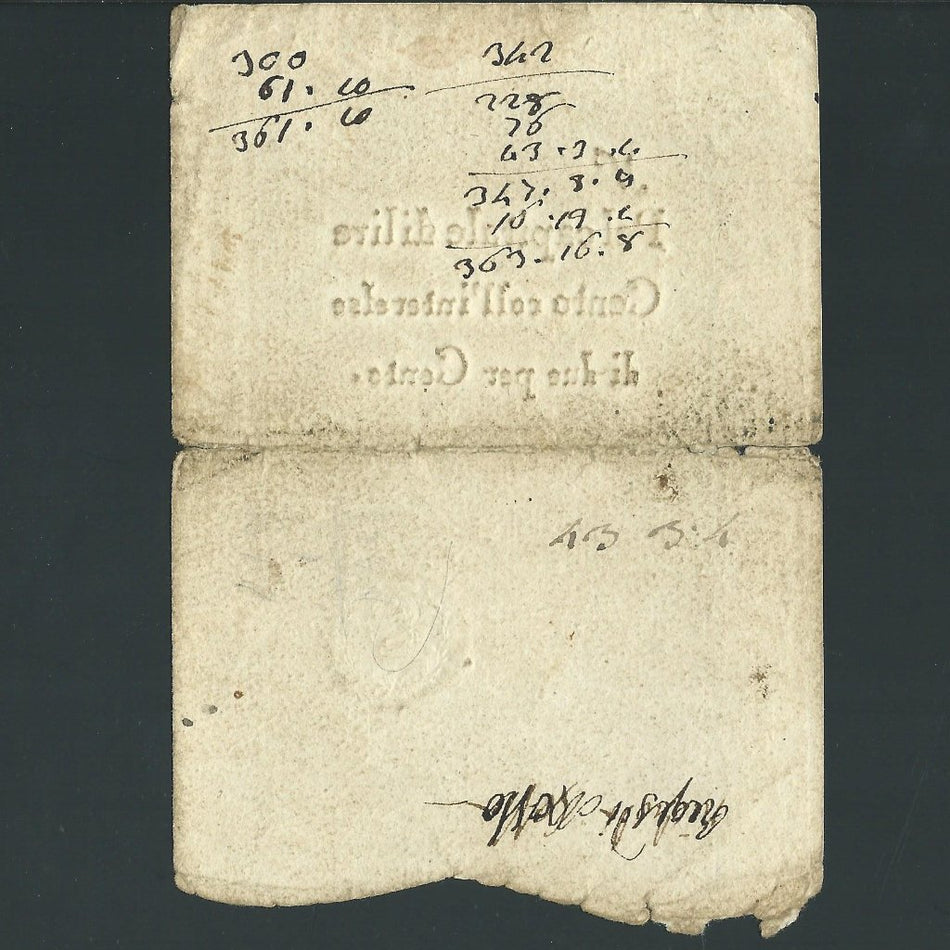 300
61. 10
361. 10
342
228
76
43. 3. 4.
347. 8. 4
16. 19. 4
363. 16. 8
Pel capitale di lire
Cento coll'interesse
di due per Cento.
43 3. 4